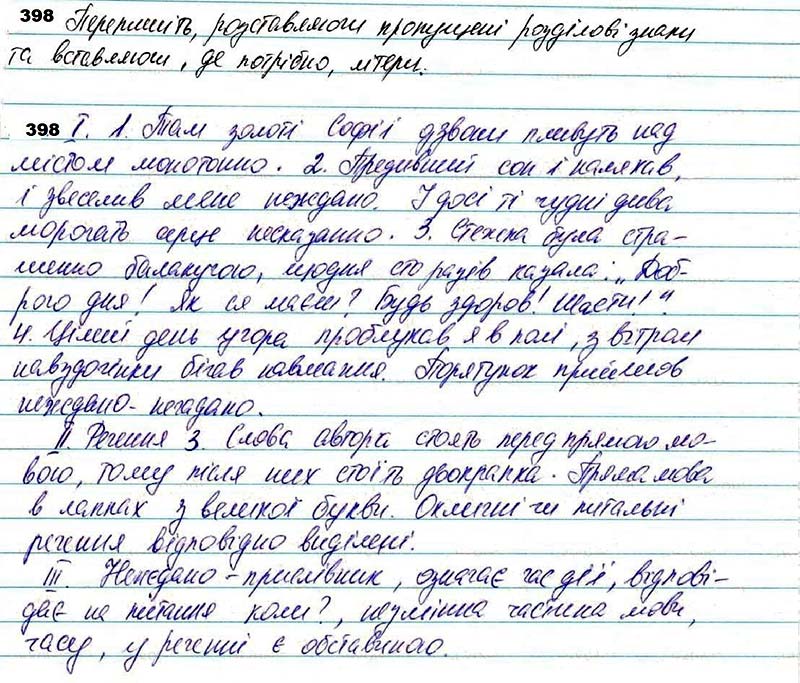 398 Перепишіть, розставляючи пропущені розділові знаки
та вставляючи, де потрібно, літери.
398 I. 1. Там золоті Софії дзвони пливуть над
містом монотонно. 2. Предивний сон і налякав,
і звеселив мене неждано. І досі ті чудні дива
морочать серце несказанно. 3. Стежка була стра-
шенно балакучою, щодня сто разів казала: „Доб-
рого дня! Як ся маєш? Будь здоров! Щасти!".
4. Цілий день учора проблукав я в полі, з вітром
навздогінки бігав навмання. Порятунок прийшов
неждано-негадано.
II. Речення 3. Слова автора стоять перед прямою мо-
вою, тому після них стоїть двокрапка. Пряма мова
в лапках з великої букви. Окличні чи питальні
речення відповідно виділені.
III Неждано - прислівник, означає час дії, відпові-
дає на питання коли?, незмінна частина мови,
часу, у реченні є обставиною.